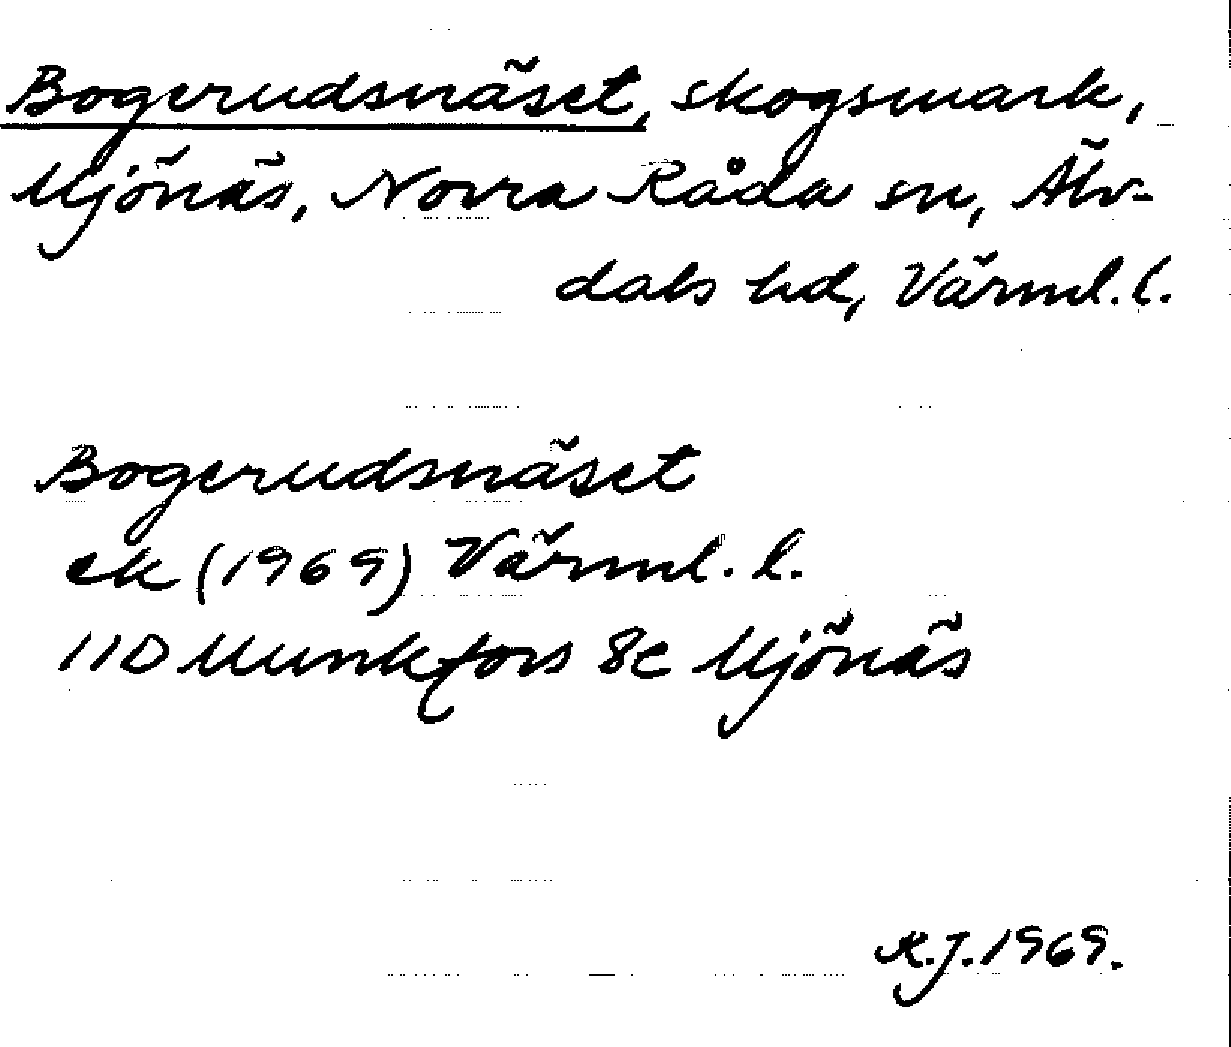 Bogerudsnäset, skogsmark,
Mjönäs, Norra Råda sn, Älv-
dals hd, Värml. l.
Bogerudsnäset
ek (1969) Värml. l.
11D Munkfors 8c Mjönäs
R.J. 1969.